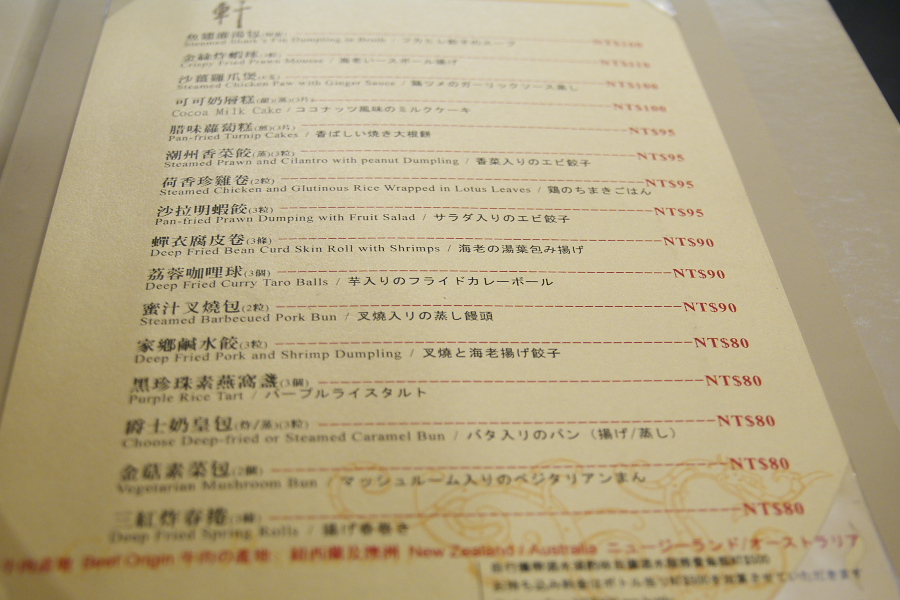 軒
Steamed Shark's Fin Dumpling in Broth / フカヒレ餃子のスープ
金絲炸蝦球
Crispy Fried Prawn Mousse / 海老いースボール揚げ
沙薑雞爪煲 NT$100
Steamed Chicken Paw with Ginger Sauce / 鶏ツメのガーリックソース蒸し
可可奶層糕 NT$100
Cocoa Milk Cake / ココナッツ風味のミルクケーキ
腊味蘿蔔糕(煎)(3片) NT$95
Pan-fried Turnip Cakes / 香ばしい焼き大根餅
潮州香菜餃(蒸)(3粒) NT$95
Steamed Prawn and Cilantro with peanut Dumpling / 香菜入りのエビ餃子
荷香珍雞卷(2粒) NT$95
Steamed Chicken and Glutinous Rice Wrapped in Lotus Leaves / 鶏のちまきごはん
沙拉明蝦餃(3粒) NT$95
Pan-fried Prawn Dumping with Fruit Salad / サラダ入りのエビ餃子
蟬衣腐皮卷(3條) NT$90
Deep Fried Bean Curd Skin Roll with Shrimps / 海老の湯葉包み揚げ
荔蓉咖哩球(3個) NT$90
Deep Fried Curry Taro Balls / 芋入りのフライドカレーボール
蜜汁叉燒包(2粒) NT$90
Steamed Barbecued Pork Bun / 叉焼入りの蒸し饅頭
家鄉鹹水餃(3粒) NT$80
Deep Fried Pork and Shrimp Dumpling / 叉焼と海老揚げ餃子
黑珍珠素燕窩盞(3個) NT$80
Purple Rice Tart / パープルライスタルト
爵士奶皇包(炸/蒸)(3粒) NT$80
Choose Deep-fried or Steamed Caramel Bun / バタ入りのパン（揚げ/蒸し）
金菇素菜包(2個) NT$80
Vegetarian Mushroom Bun / マッシュルーム入りのベジタリアンまん
三紅炸春捲(3個) NT$80
Deep Fried Spring Rolls / 揚げ春巻き
牛肉產地 Beef Origin 牛肉の產地: 紐西蘭及澳洲 New Zealand / Australia ニュージーランド/オーストラリア